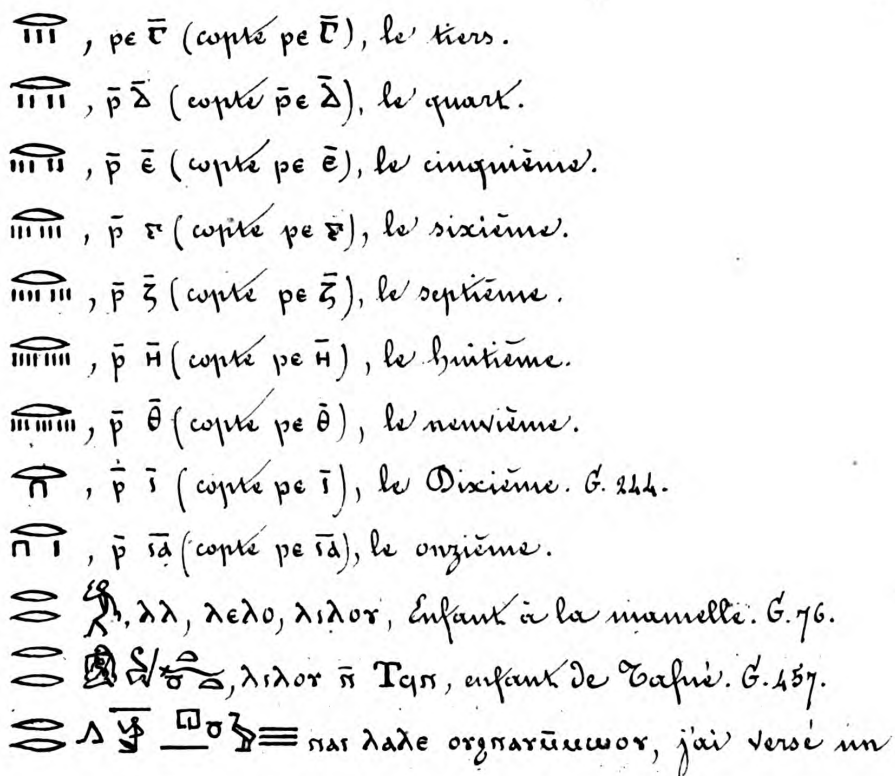 , ⲣⲉ ⲅ̄ (copte ⲣⲉ ⲅ̄), le tiers.
, ⲣ̄ ⲇ̄ (copte ⲣ̄ⲉ ⲇ̄), le quart.
, ⲣ̄ ⲉ̄ (copte ⲣⲉ ⲉ̄), le cinquième.
, ⲣ̄ (copte ⲣⲉ), le sixième.
, ⲣ̄ ⲍ̄ (copte ⲣⲉ ⲍ̄), le septième.
, ⲣ̄ ⲏ̄ (copte ⲣⲉ ⲏ̄), le huitième.
, ⲣ̄ ⲑ̄ (copte ⲣⲉ ⲑ̄), le neuvième.
, ⲣ̄ ⲓ̄ (copte ⲣⲉ ⲓ̄), le Dixième. G. 244.
, ⲣ̄ ⲓⲁ̄ (copte ⲣⲉ ⲓⲁ̄), le onzième.
, ⲗⲗ, ⲗⲉⲗⲟ, ⲗⲓⲗⲟⲩ, Enfant à la mamelle. G. 76.
, ⲗⲓⲗⲟⲩ ⲛ̄ Ⲧϥⲛ, enfant de Tafné. G. 457.
ⲗⲁⲗⲉ, j'ai versé un